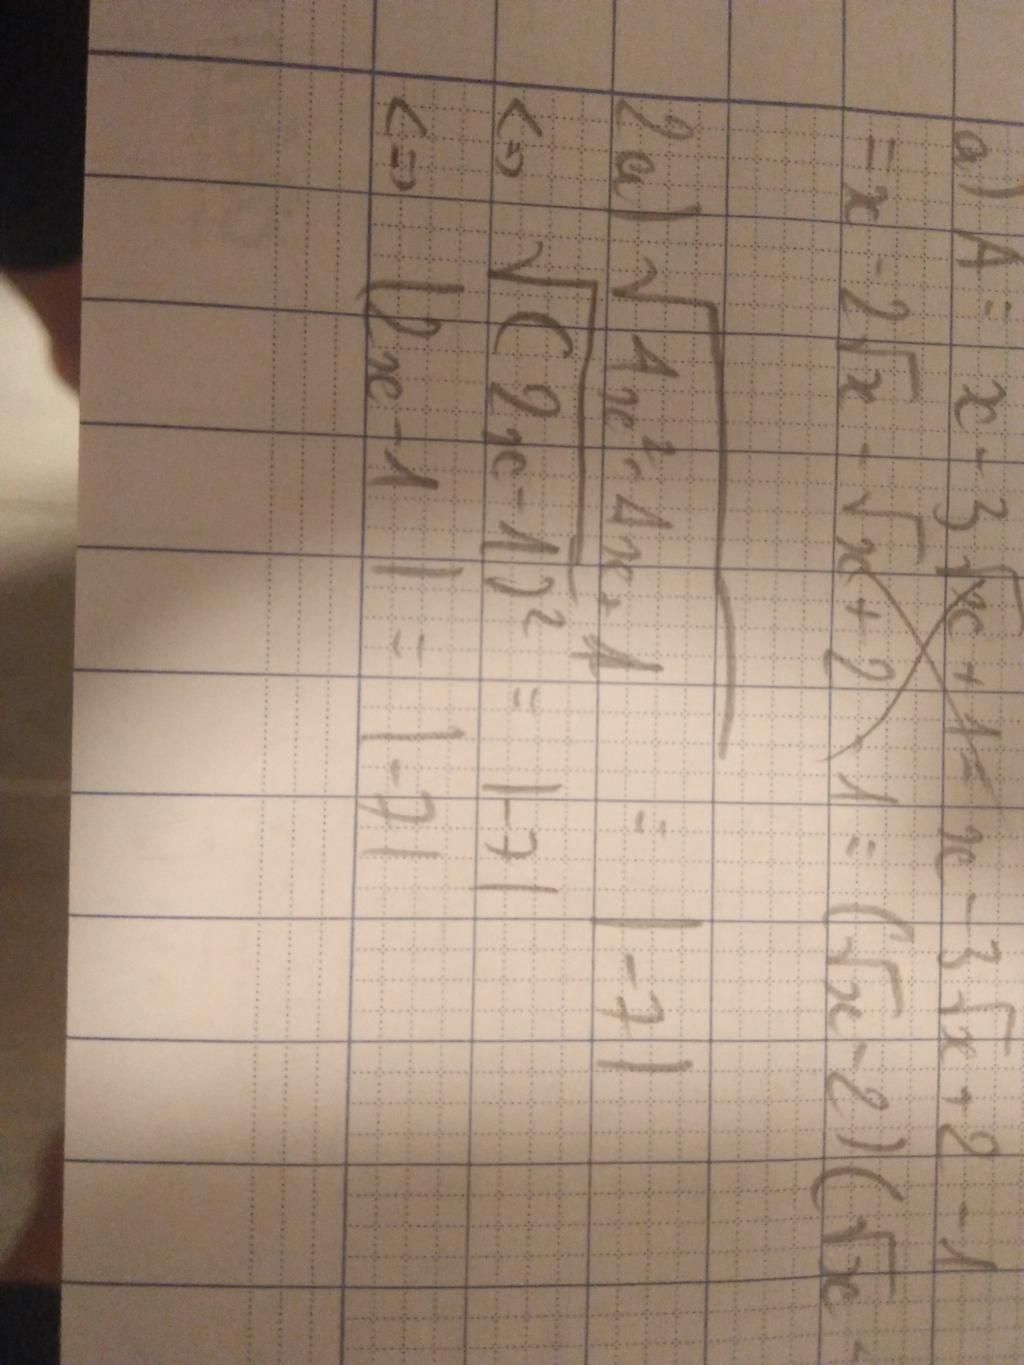 a) A = x - 3√x + 1 = x - 3√x + 2 - 1
= x - 2√x - √x + 2 - 1 = (√x - 2)(√x -
2a) √4x² - 4x + 1 = |-7|
<=> √(2x - 1)² = |-7|
<=> |2x - 1| = |-7|